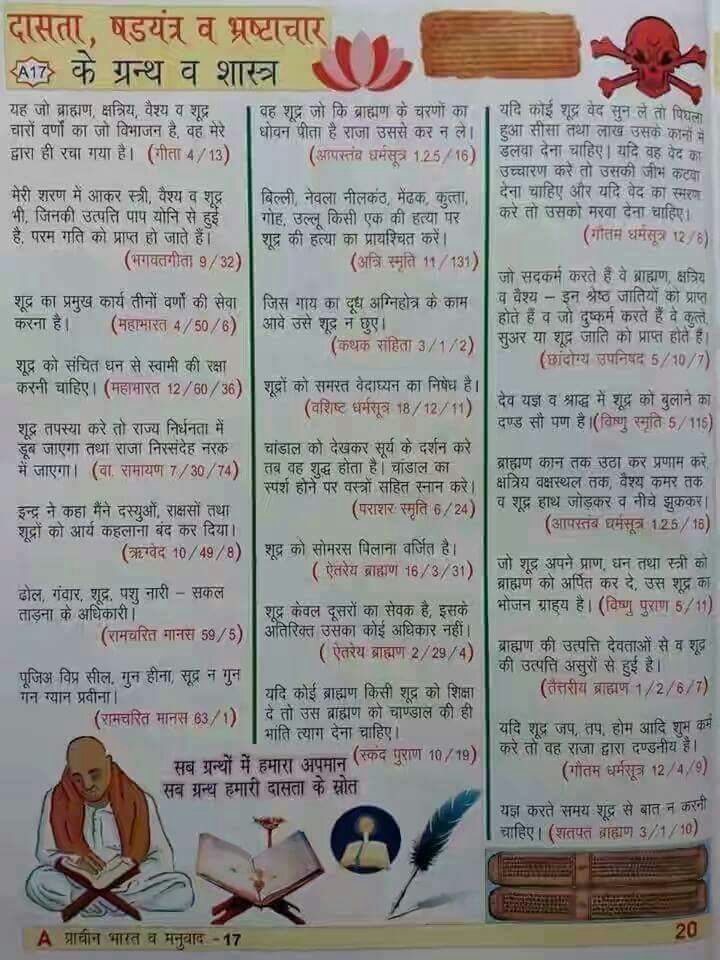 दासता, षडयंत्र व भ्रष्टाचार
A17 के ग्रन्थ व शास्त्र
यह जो ब्राह्मण, क्षत्रिय, वैश्य व शूद्र
चारों वर्णों का जो विभाजन है, वह मेरे
द्वारा ही रचा गया है। (गीता 4/13)
मेरी शरण में आकर स्त्री, वैश्य व शूद्र
भी, जिनकी उत्पत्ति पाप योनि से हुई
है, परम गति को प्राप्त हो जाते हैं।
(भगवतगीता 9/32)
शूद्र का प्रमुख कार्य तीनों वर्णों की सेवा
करना है। (महाभारत 4/50/6)
शूद्र को संचित धन से स्वामी की रक्षा
करनी चाहिए। (महाभारत 12/60/36)
शूद्र तपस्या करे तो राज्य निर्धनता में
डूब जाएगा तथा राजा निस्संदेह नरक
में जाएगा। (वा. रामायण 7/30/74)
इन्द्र ने कहा मैंने दस्युओं, राक्षसों तथा
शूद्रों को आर्य कहलाना बंद कर दिया।
(ऋग्वेद 10/49/8)
ढोल, गंवार, शूद्र, पशु नारी – सकल
ताड़ना के अधिकारी।
(रामचरित मानस 59/5)
पूजिअ विप्र सील, गुन हीना, सूद्र न गुन
गन ग्यान प्रवीना।
(रामचरित मानस 63/1)
वह शूद्र जो कि ब्राह्मण के चरणों का
धोवन पीता है राजा उससे कर न ले।
(आपस्तंब धर्मसूत्र 1.2.5/16)
बिल्ली, नेवला नीलकंठ, मेंढक, कुत्ता,
गोह, उल्लू किसी एक की हत्या पर
शूद्र की हत्या का प्रायश्चित करें।
(अत्रि स्मृति 11/131)
जिस गाय का दूध अग्निहोत्र के काम
आवे उसे शूद्र न छुए।
(कथक संहिता 3/1/2)
शूद्रों को समस्त वेदाध्यन का निषेध है।
(वशिष्ट धर्मसूत्र 18/12/11)
चांडाल को देखकर सूर्य के दर्शन करे
तब वह शुद्ध होता है। चांडाल का
स्पर्श होने पर वस्त्रों सहित स्नान करे।
(पराशर स्मृति 6/24)
शूद्र को सोमरस पिलाना वर्जित है।
( ऐतरेय ब्राह्मण 16/3/31)
शूद्र केवल दूसरों का सेवक है, इसके
अतिरिक्त उसका कोई अधिकार नहीं।
( ऐतरेय ब्राह्मण 2/29/4)
यदि कोई ब्राह्मण किसी शूद्र को शिक्षा
दे तो उस ब्राह्मण को चाण्डाल की ही
भांति त्याग देना चाहिए।
(स्कंद पुराण 10/19)
यदि कोई शूद्र वेद सुन ले तो पिघला
हुआ सीसा तथा लाख उसके कानों में
डलवा देना चाहिए। यदि वह वेद का
उच्चारण करे तो उसकी जीभ कटवा
देना चाहिए और यदि वेद का स्मरण
करे तो उसको मरवा देना चाहिए।
(गौतम धर्मसूत्र 12/6)
जो सदकर्म करते हैं वे ब्राह्मण, क्षत्रिय
व वैश्य – इन श्रेष्ठ जातियों को प्राप्त
होते हैं व जो दुष्कर्म करते हैं वे कुत्ते,
सुअर या शूद्र जाति को प्राप्त होते हैं।
(छांदोग्य उपनिषद 5/10/7)
देव यज्ञ व श्राद्ध में शूद्र को बुलाने का
दण्ड सौ पण है।(विष्णु स्मृति 5/115)
ब्राह्मण कान तक उठा कर प्रणाम करे,
क्षत्रिय वक्षस्थल तक, वैश्य कमर तक
व शूद्र हाथ जोड़कर व नीचे झुककर।
(आपस्तंब धर्मसूत्र 1.2.5/16)
जो शूद्र अपने प्राण, धन तथा स्त्री को
ब्राह्मण को अर्पित कर दे, उस शूद्र का
भोजन ग्राह्य है। (विष्णु पुराण 5/11)
ब्राह्मण की उत्पत्ति देवताओं से व शूद्र
की उत्पत्ति असुरों से हुई है।
(तैत्तरीय ब्राह्मण 1/2/6/7)
यदि शूद्र जप, तप, होम आदि शुभ कर्म
करे तो वह राजा द्वारा दण्डनीय है।
(गौतम धर्मसूत्र 12/4/9)
यज्ञ करते समय शूद्र से बात न करनी
चाहिए। (शतपत ब्राह्मण 3/1/10)
सब ग्रन्थों में हमारा अपमान
सब ग्रन्थ हमारी दासता के स्रोत
A प्राचीन भारत व मनुवाद -17
20